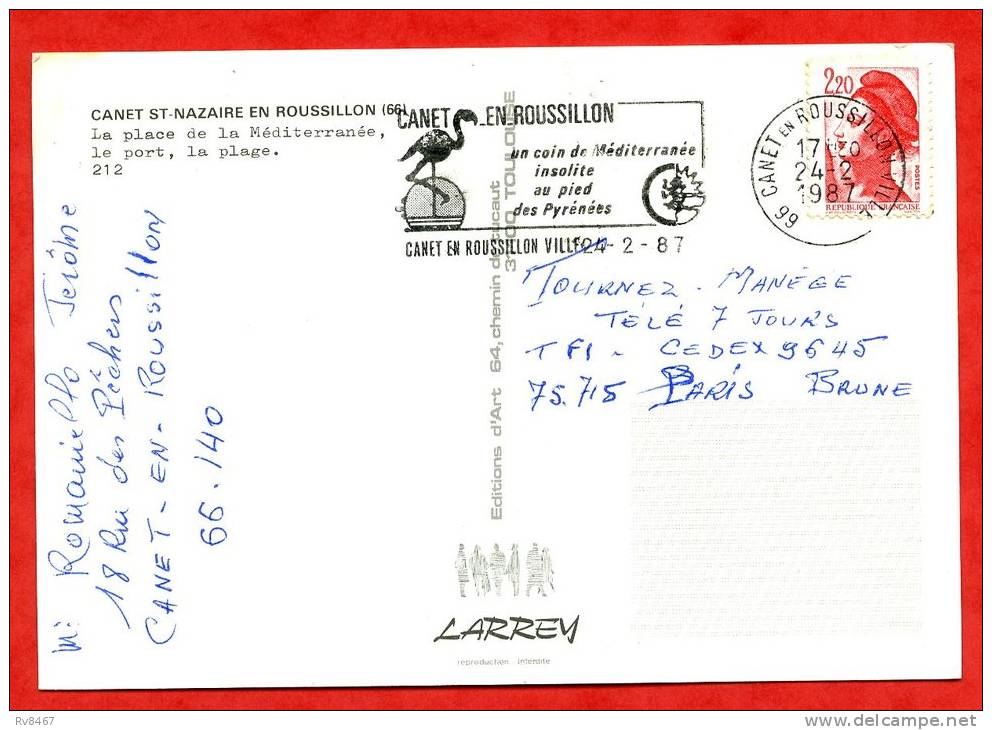 CANET ST-NAZAIRE EN ROUSSILLON (66)
La place de la Méditerranée,
le port, la plage.
212
CANET EN ROUSSILLON
un coin de Méditerranée
insolite
au pied
des Pyrénées
CANET EN ROUSSILLON VILLE 24-2-87
CANET EN ROUSSILLON VILLE
17H30
24-2
1987
66
2,20
POSTES
REPUBLIQUE FRANÇAISE
TOURNEZ. MANÈGE
TÉLÉ 7 JOURS
TF1 - CEDEX 9645
75.715 PARIS BRUNE
Romaniello Jérôme
18 Rue des Pêchers
CANET-EN-ROUSSillON
66.140
Editions d'Art 64, chemin
TOULOUSE
LARREY
reproduction interdite
Rv8467
delcampe.net